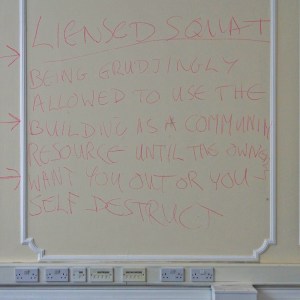 LIENSED SQUAT
BEING GRUDJINGLY
ALLOWED TO USE THE
BUILDING AS A COMMUNIN
RESOURCE UNTIL THE OWNER
WANT YOU OUT OR YOU
SELF DESTRUCT